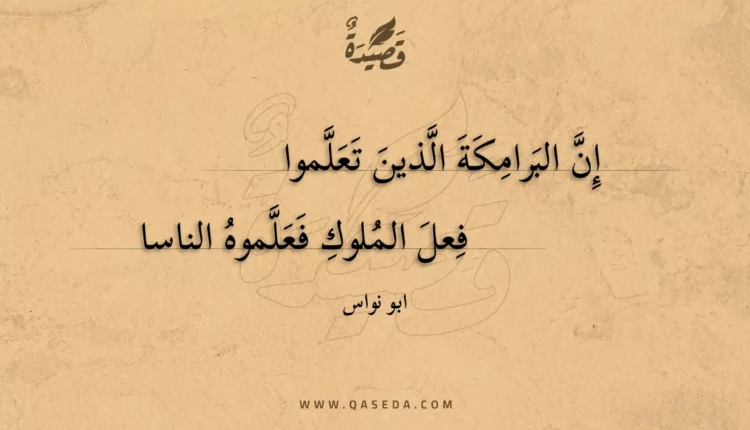 قَصِيْدَةٌ
إِنَّ البَرامِكَةَ الَّذينَ تَعَلَّموا
فِعلَ المُلوكِ فَعَلَّموهُ الناسا
ابو نواس
WWW.QASEDA.COM